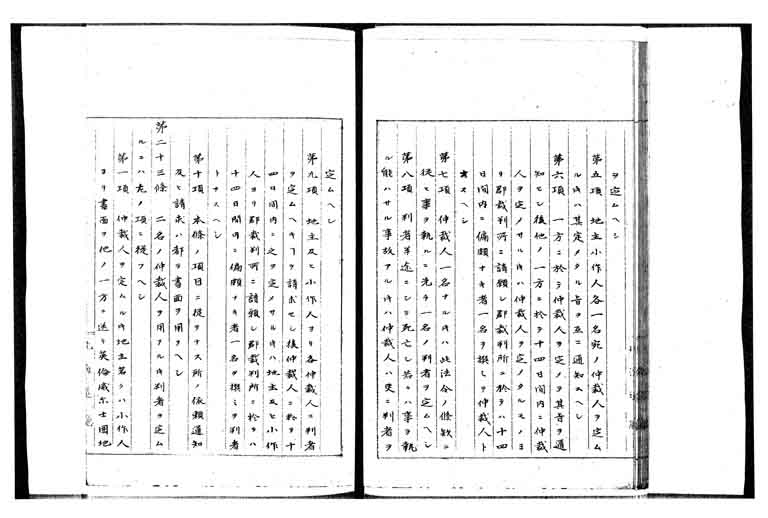 ヲ定ムヘシ
第五項 地主小作人各一名宛ノ仲裁人ヲ定ム
ルキハ其定メタル旨ヲ互ニ通知スヘシ
第六項 一方ニ於テ仲裁人ヲ定メヲ其旨ヲ通
知セシ後他ノ一方ニ於テ十四日間内ニ仲裁
人ヲ定メサルキハ仲裁人ヲ定メタルモノヨ
リ郡裁判所ニ請願シ郡裁判所ニ於テハ十四
日間内ニ偏頗ナキ者一名ヲ撰ミテ仲裁人ト
スヘシ
第七項 仲裁人一名ナルキハ此法令ノ條款ニ
従ヒ事ヲ執ルニ先チ一名ノ判者ヲ定ムヘシ
第八項 判者半途ニシテ死亡シ若クハ事ヲ執
ル能ハサル事故アルキハ仲裁人ハ更ニ判者ヲ
定ムヘシ
第九項 地主及ヒ小作人ヨリ各仲裁人ニ判者
ヲ定ムヘキ丁ヲ請求セシ後仲裁人ニ於テ十
四日間内ニ之ヲ定メサルキハ地主及ヒ小作
人ヨリ郡裁判所ニ請願シ郡裁判所ニ於テハ
十四日間内ニ偏頗ナキ者一名ヲ撰ミテ判者
トナスヘシ
第十項 本條ノ項目ニ従ヲナス所ノ依頼通知
及ヒ請求ハ都テ書面ヲ用ヲヘシ
第二十三條 二名ノ仲裁人ヲ用フルキ判者ヲ定ム
ルニハ左ノ項ニ従フヘシ
第一項 仲裁人ヲ定ムルキ地主若クハ小作人
ヨリ書面ヲ他ノ一方ニ送リ英倫威尓士国地